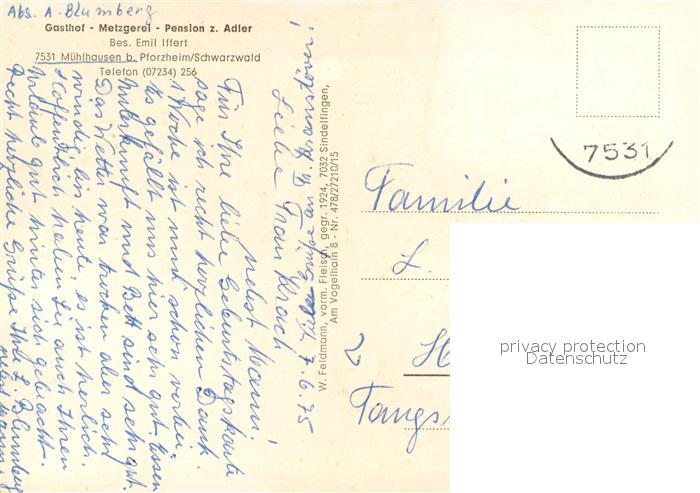 Abs. A. Blumberg
Gasthof - Metzgerei - Pension z. Adler
Bes. Emil Iffert
7531 Mühlhausen b. Pforzheim/Schwarzwald
Telefon (07234) 256
7.6.75
Liebe Frau Krach
nebst Mann!
Für Ihre liebe Geburtstagskarte
sage ich recht herzlichen Dank.
1 Woche ist nun schon vorbei
es gefällt uns hier sehr gut. Essen
Unterkunft und Bett sind sehr gut.
Das Wetter war trocken aber sehr
windig bis heute es ist herlich.
Hoffendlich haben Sie auch Ihren
Urlaub gut hinter sich gebracht.
Recht herzliche Grüße Ihre L. Blumberg
nebst Mann.
W. Feldmann, vorm. Fleisch, gegr. 1924, 7032 Sindelfingen,
Am Vogelhain 8 - Nr. 478/27210/15
7531
Familie
L.
H
Tangs
privacy protection
Datenschutz